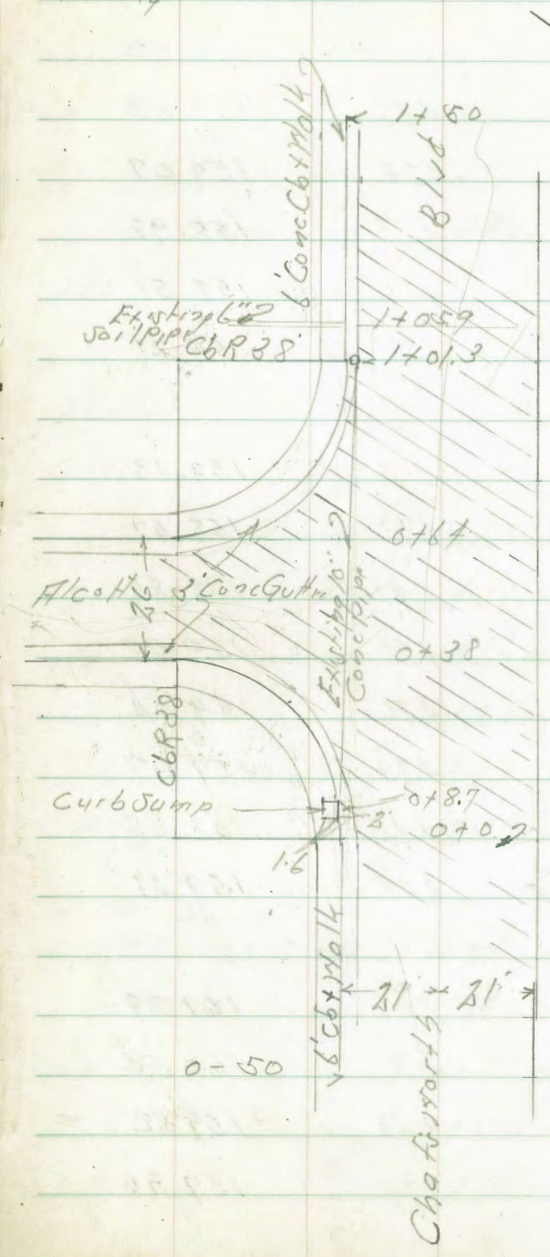 1+50
Blvd
6' Conc Cb+Walk
Existing 6"
Soil Pipe
1+05.9
CbR38'
1+01.3
0+64
Alcott
26
3' Conc Gutter
Existing 10"
Conc Pipe
0+38
CbR38
Curb Sump
0+8.7
2'
0+0.
1.6
6' Cb+Walk
21'
21'
0-50
Chatsworth